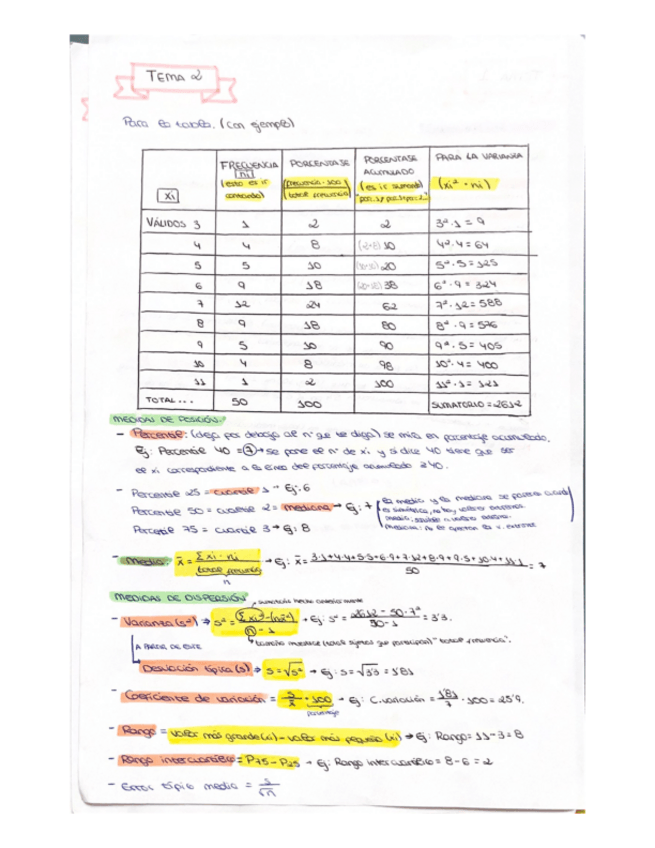 TEMA 2
Para la tabla. (con ejemplo)
Xi | FRECUENCIA ni (esto es ir contando) | PORCENTAJE (frecuencia · 100 / total frecuencia) | PORCENTAJE ACUMULADO (es ir sumando) | PARA LA VARIANZA (xi² · ni)
VÁLIDOS 3 | 1 | 2 | 2 | 3²·1 = 9
4 | 4 | 8 | (2+8) 10 | 4²·4 = 64
5 | 5 | 10 | 20 | 5²·5 = 125
6 | 9 | 18 | 38 | 6²·9 = 324
7 | 12 | 24 | 62 | 7²·12 = 588
8 | 9 | 18 | 80 | 8²·9 = 576
9 | 5 | 10 | 90 | 9²·5 = 405
10 | 4 | 8 | 98 | 10²·4 = 400
11 | 1 | 2 | 100 | 11²·1 = 121
TOTAL... | 50 | 100 | SUMATORIO = 2612
MEDIDAS DE POSICIÓN:
- Percentil: (deja por debajo al nº que te diga) se mira en porcentaje acumulado.
Ej: Percentil 40 = 7 → se pone el nº de xi y si dice 40 tiene que ser
el xi correspondiente a la línea del porcentaje acumulado ≥ 40.
- Percentil 25 = cuartil 1 → Ej: 6
Percentil 50 = cuartil 2 = mediana → Ej: 7
la media y la mediana se parecen cuando
es simétrica, no hay valores extremos
media: sensible a valores extremos.
mediana: no le afectan los v. extremos
Percentil 75 = cuartil 3 → Ej: 8
- Media: x̄ = Σxi · ni / total frecuencia n → Ej: x̄ = 3·1+4·4+5·5+6·9+7·12+8·9+9·5+10·4+11·1 / 50 = 7
MEDIDAS DE DISPERSIÓN
sumatorio hecho anteriormente
- Varianza (s²) → s² = Σxi²-(nx̄²) / n - 1 → Ej: s² = 2612 - 50·7² / 50-1 = 3'3.
tamaño muestra (total sujetos que participan) "total frecuencia".
A PARTIR DE ESTE
Desviación típica (s) → s = √s² → Ej: s = √3'3 = 1'81
- Coeficiente de variación = s / x̄ · 100 → Ej: C.variación = 1'81 / 7 · 100 = 25'9.
porcentaje
- Rango = valor más grande (xi) - valor más pequeño (xi) → Ej: Rango = 11-3 = 8
- Rango intercuartílico = P75 - P25 → Ej: Rango intercuartílico = 8-6 = 2
- Error típico media = s / √n